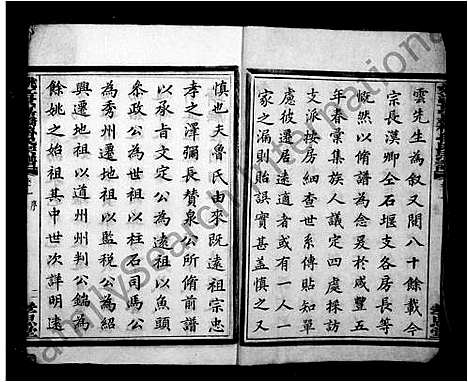 雲先生為敘又閒八十餘載今
宗長漢卿仝石堰支各房長等
慨然以脩譜為念爰於咸豐五
年春彙集族人議定四處採訪
支派按房細查世系傳貼知單
處彼遷居遠適者或有一人一
家之漏則貽誤實甚盖慎之又
慎也夫魯氏由來既遠祖宗忠
孝之澤彌長贊泉公所脩前譜
以承肓文定公為遠祖以魚頭
叅政公為世祖以柱石司馬公
為秀州遷地祖以監税公為紹
興遷地祖以道州州判公鎬為
餘姚之始祖其中世次詳明遠
序
FamilySearch International